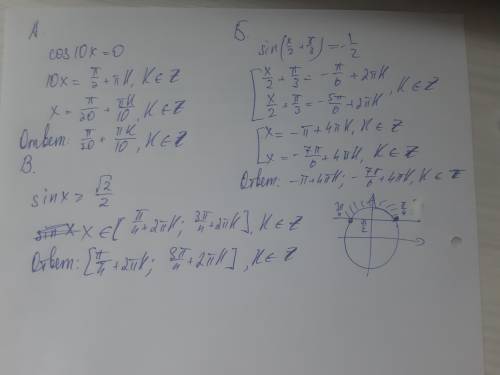 А.
cos10x=0
10x = π/2 + πK, K∈Z
x = π/20 + πK/10, K∈Z
Ответ: π/20 + πK/10, K∈Z
Б.
sin(x/2 + π/3) = -1/2
x/2 + π/3 = -π/6 + 2πK
x/2 + π/3 = -5π/6 + 2πK, K∈Z
x = -π + 4πK, K∈Z
x = -7π/6 + 4πK, K∈Z
Ответ: -π+4πK; -7π/6 + 4πK, K∈Z
В.
sinx ≥ √2/2
x∈[π/4 + 2πK; 3π/4 + 2πK], K∈Z
Ответ: [π/4 + 2πK; 3π/4 + 2πK], K∈Z